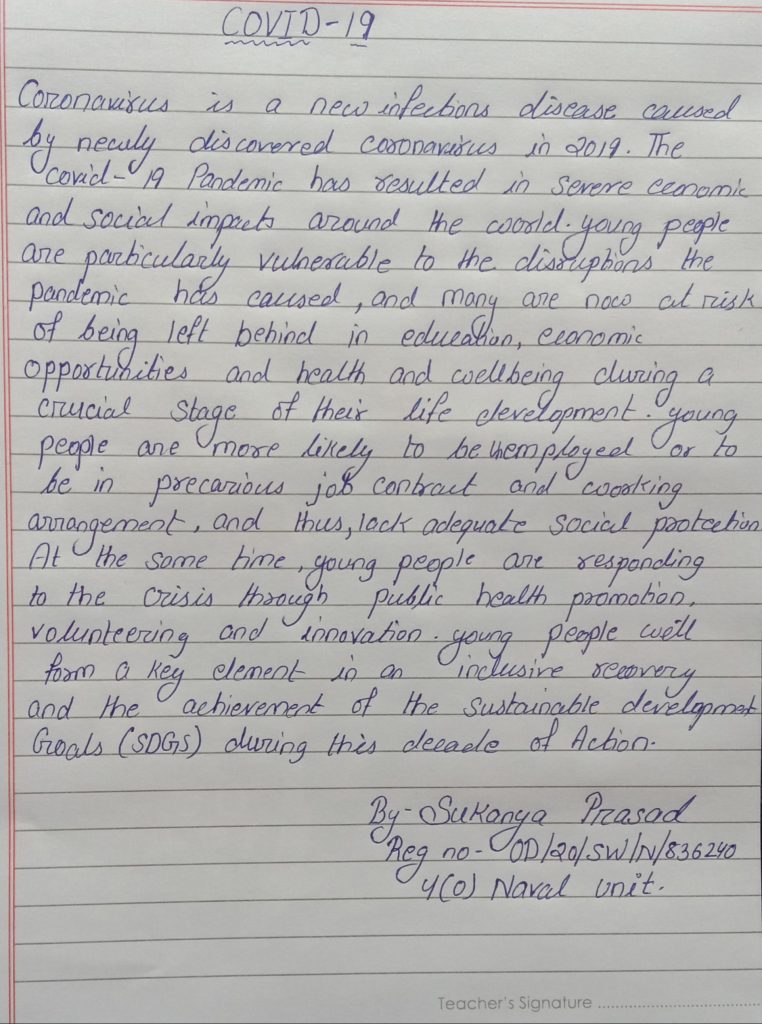 COVID-19
Coronavirus is a new infections disease caused
by newly discovered coronavirus in 2019. The
covid-19 Pandemic has resulted in severe economic
and social impacts around the world. young people
are particularly vulnerable to the disruptions the
pandemic has caused, and many are now at risk
of being left behind in education, economic
opportunities and health and wellbeing during a
crucial stage of their life development. young
people are more likely to be unemployed or to
be in precarious job contract and working
arrangement, and thus, lack adequate social protection
At the same time, young people are responding
to the crisis through public health promotion,
volunteering and innovation. young people well
form a key element in an inclusive recovery
and the achievement of the sustainable development
Goals (SDGS) during this decade of Action.
By- Sukanya Prasad
Reg no- OD/20/SW/N/836240
4(O) Naval unit.
Teacher's Signature ..............................